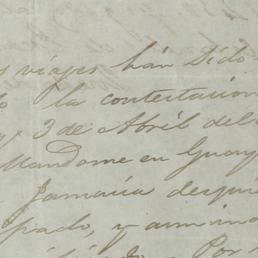 viajes hán Sido
la contestación
3 de Abril del
Mandome en Guay
Jamaica despu
pado, y aun ino
Por